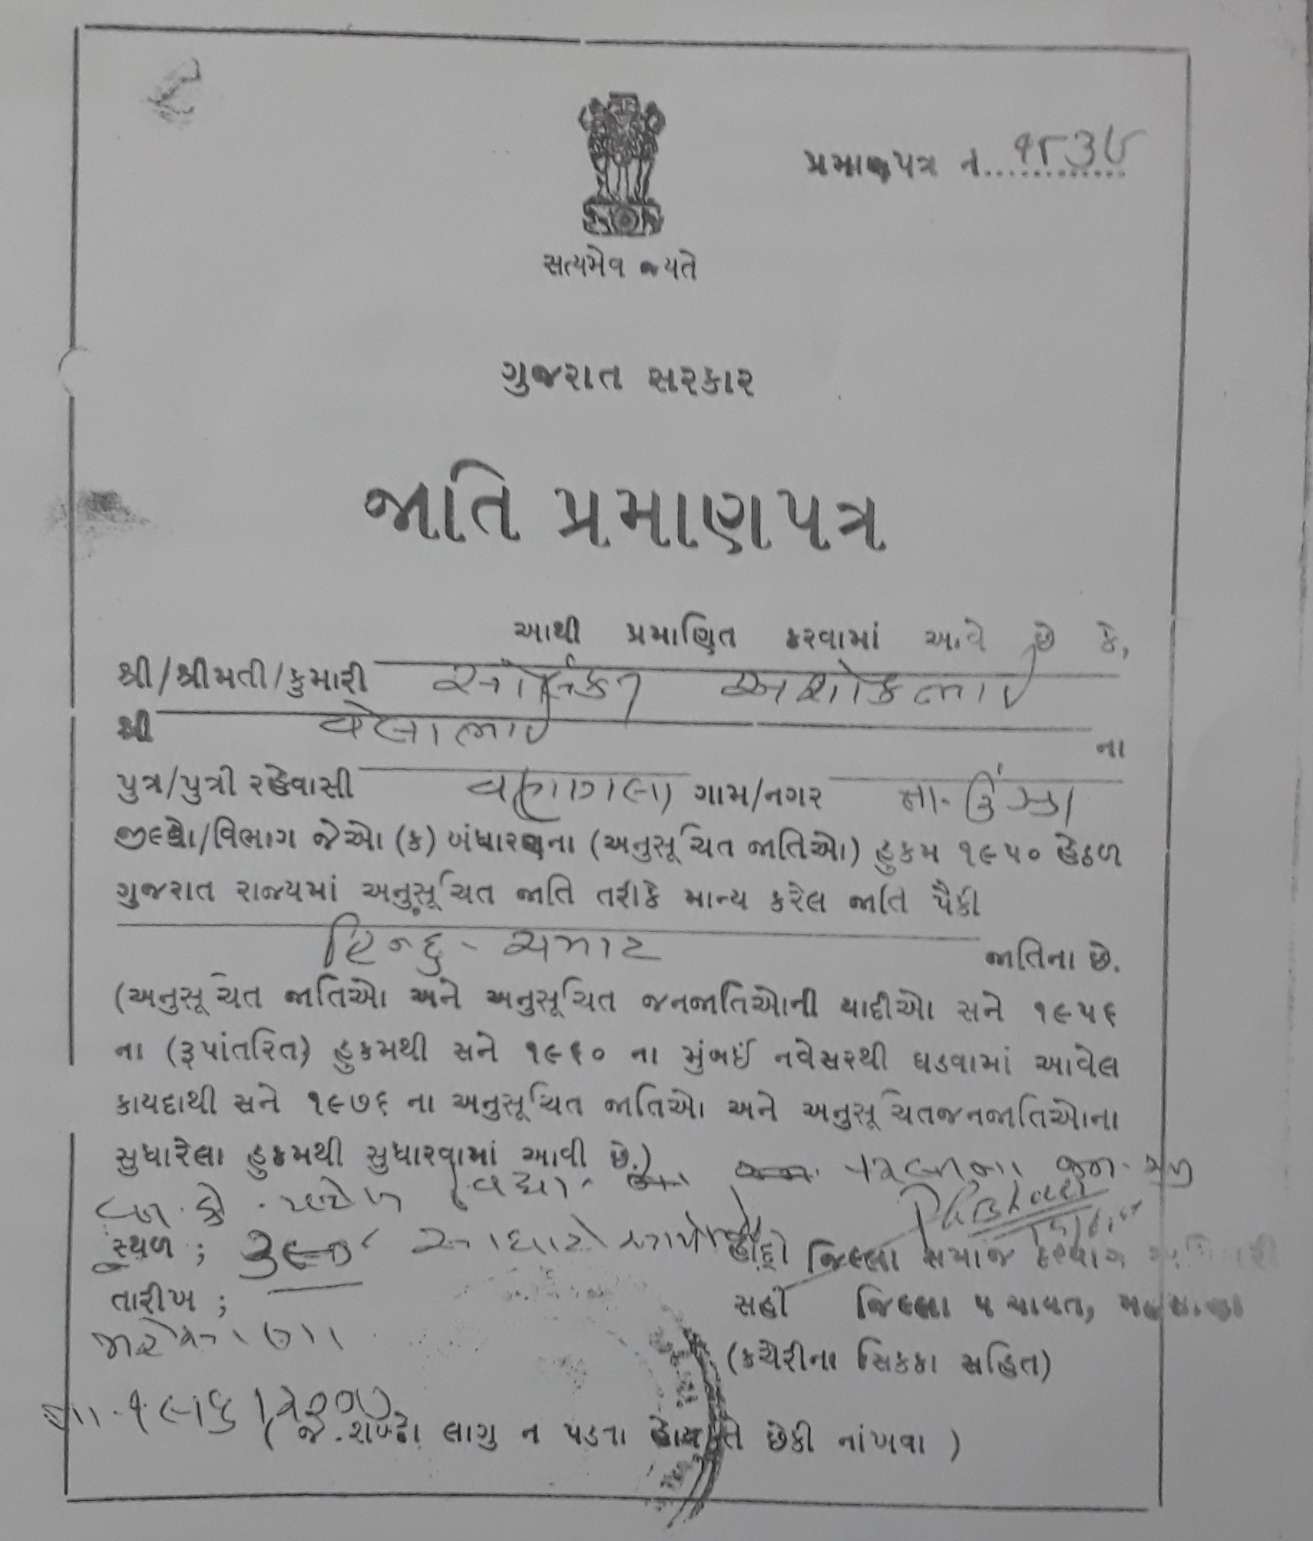 પ્રમાણપત્ર નં.
સત્યમેવ જયતે
ગુજરાત સરકાર
જાતિ પ્રમાણપત્ર
આથી પ્રમાણિત કરવામાં આવે છે કે,
શ્રી/શ્રીમતી/કુમારી અશોકભાઈ
શ્રી વેલાભાઈ ના
પુત્ર/પુત્રી રહેવાસી ગામ/નગર તા. ઉંઝા
જીલ્લો/વિભાગ જેઓ (ક) બંધારણના (અનુસૂચિત જાતિઓ) હુકમ ૧૯૫૦ હેઠળ
ગુજરાત રાજ્યમાં અનુસૂચિત જાતિ તરીકે માન્ય કરેલ જાતિ પૈકી
હિન્દુ - ચમાર જાતિના છે.
(અનુસૂચિત જાતિઓ અને અનુસૂચિત જનજાતિઓની યાદીઓ સને ૧૯૫૬
ના (રૂપાંતરિત) હુકમથી સને ૧૯૬૦ ના મુંબઈ નવેસરથી ઘડવામાં આવેલ
કાયદાથી સને ૧૯૭૬ ના અનુસૂચિત જાતિઓ અને અનુસૂચિતજનજાતિઓના
સુધારેલા હુકમથી સુધારવામાં આવી છે.)
સ્થળ ; હોદ્દો જિલ્લા સમાજ કલ્યાણ
તારીખ ; સહી જિલ્લા પંચાયત,
(કચેરીના સિક્કા સહિત)
(જે શબ્દો લાગુ ન પડતા હોય તે છેકી નાંખવા )